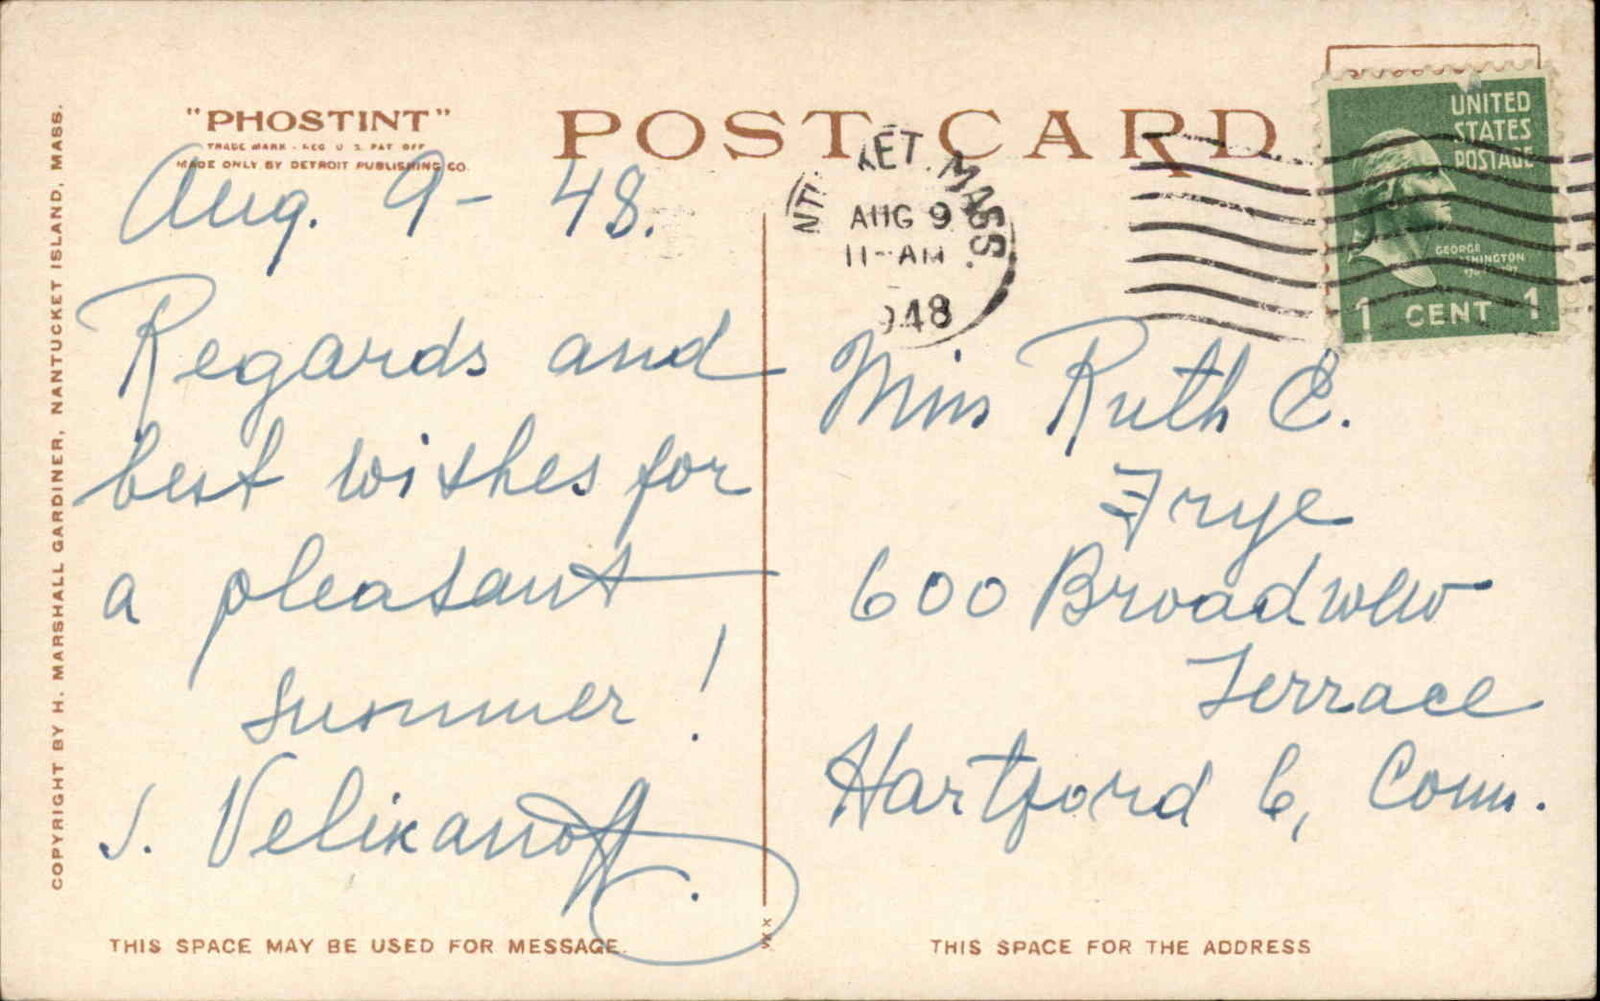 "PHOSTINT"
TRADE MARK - REG U S PAT OFF
MADE ONLY BY DETROIT PUBLISHING CO.
POST CARD
COPYRIGHT BY H. MARSHALL GARDINER, NANTUCKET ISLAND, MASS.
Aug. 9 - 48.
Regards and
best wishes for
a pleasant
summer!
J. Velikanoff.
THIS SPACE MAY BE USED FOR MESSAGE.
MASS.
AUG 9
11-AM
1948
UNITED
STATES
POSTAGE
GEORGE
WASHINGTON
1 CENT 1
Miss Ruth E.
Frye
600 Broadview
Terrace
Hartford 6, Conn.
THIS SPACE FOR THE ADDRESS